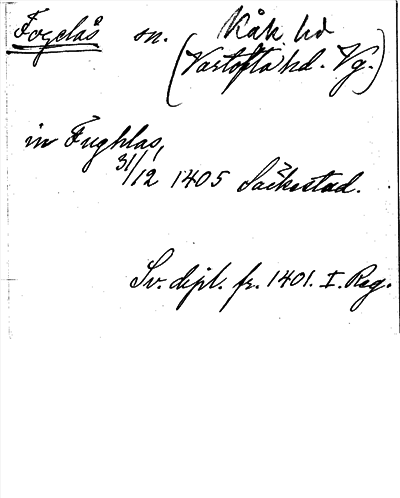 Fogelås sn. Kåk hd
(Vartofta hd. Vg.)
in Fughlas,
31/12 1405 Säckestad.
Sv. dipl. fr. 1401. I. Reg.